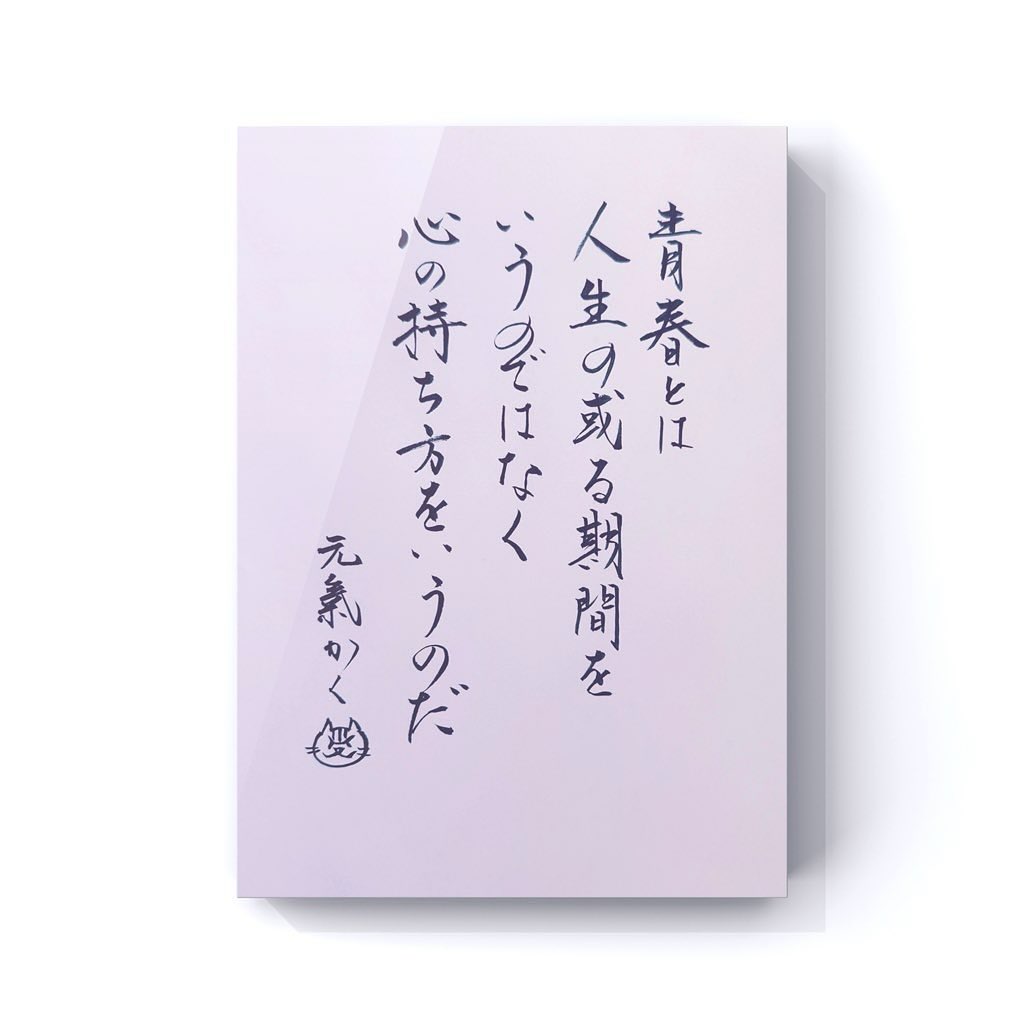 青春とは
人生の或る期間を
いうのではなく
心の持ち方をいうのだ
元氣かく